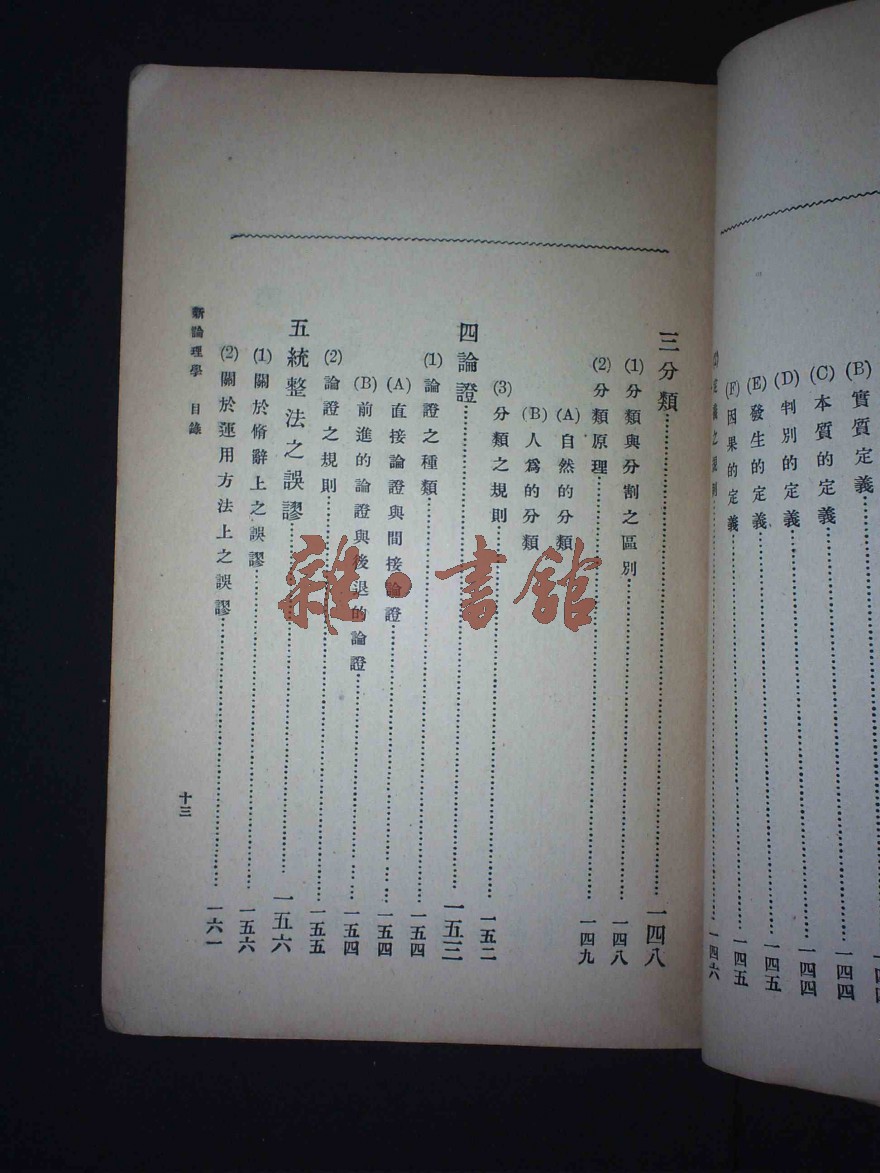 (B) 實質定義……一四四
(C) 本質的定義……一四四
(D) 判別的定義……一四四
(E) 發生的定義……一四五
(F) 因果的定義……一四五
之規則……一四六
三 分類……一四八
(1) 分類與分割之區別……一四八
(2) 分類原理……一四九
(A) 自然的分類
(B) 人爲的分類
(3) 分類之規則……一五二
四 論證……一五三
(1) 論證之種類……一五四
(A) 直接論證與間接論證……一五四
(B) 前進的論證與後退的論證……一五四
(2) 論證之規則……一五五
五 統整法之誤謬……一五六
(1) 關於脩辭上之誤謬……一五六
(2) 關於運用方法上之誤謬……一六一
新論理學 目錄
十三
雜·書館